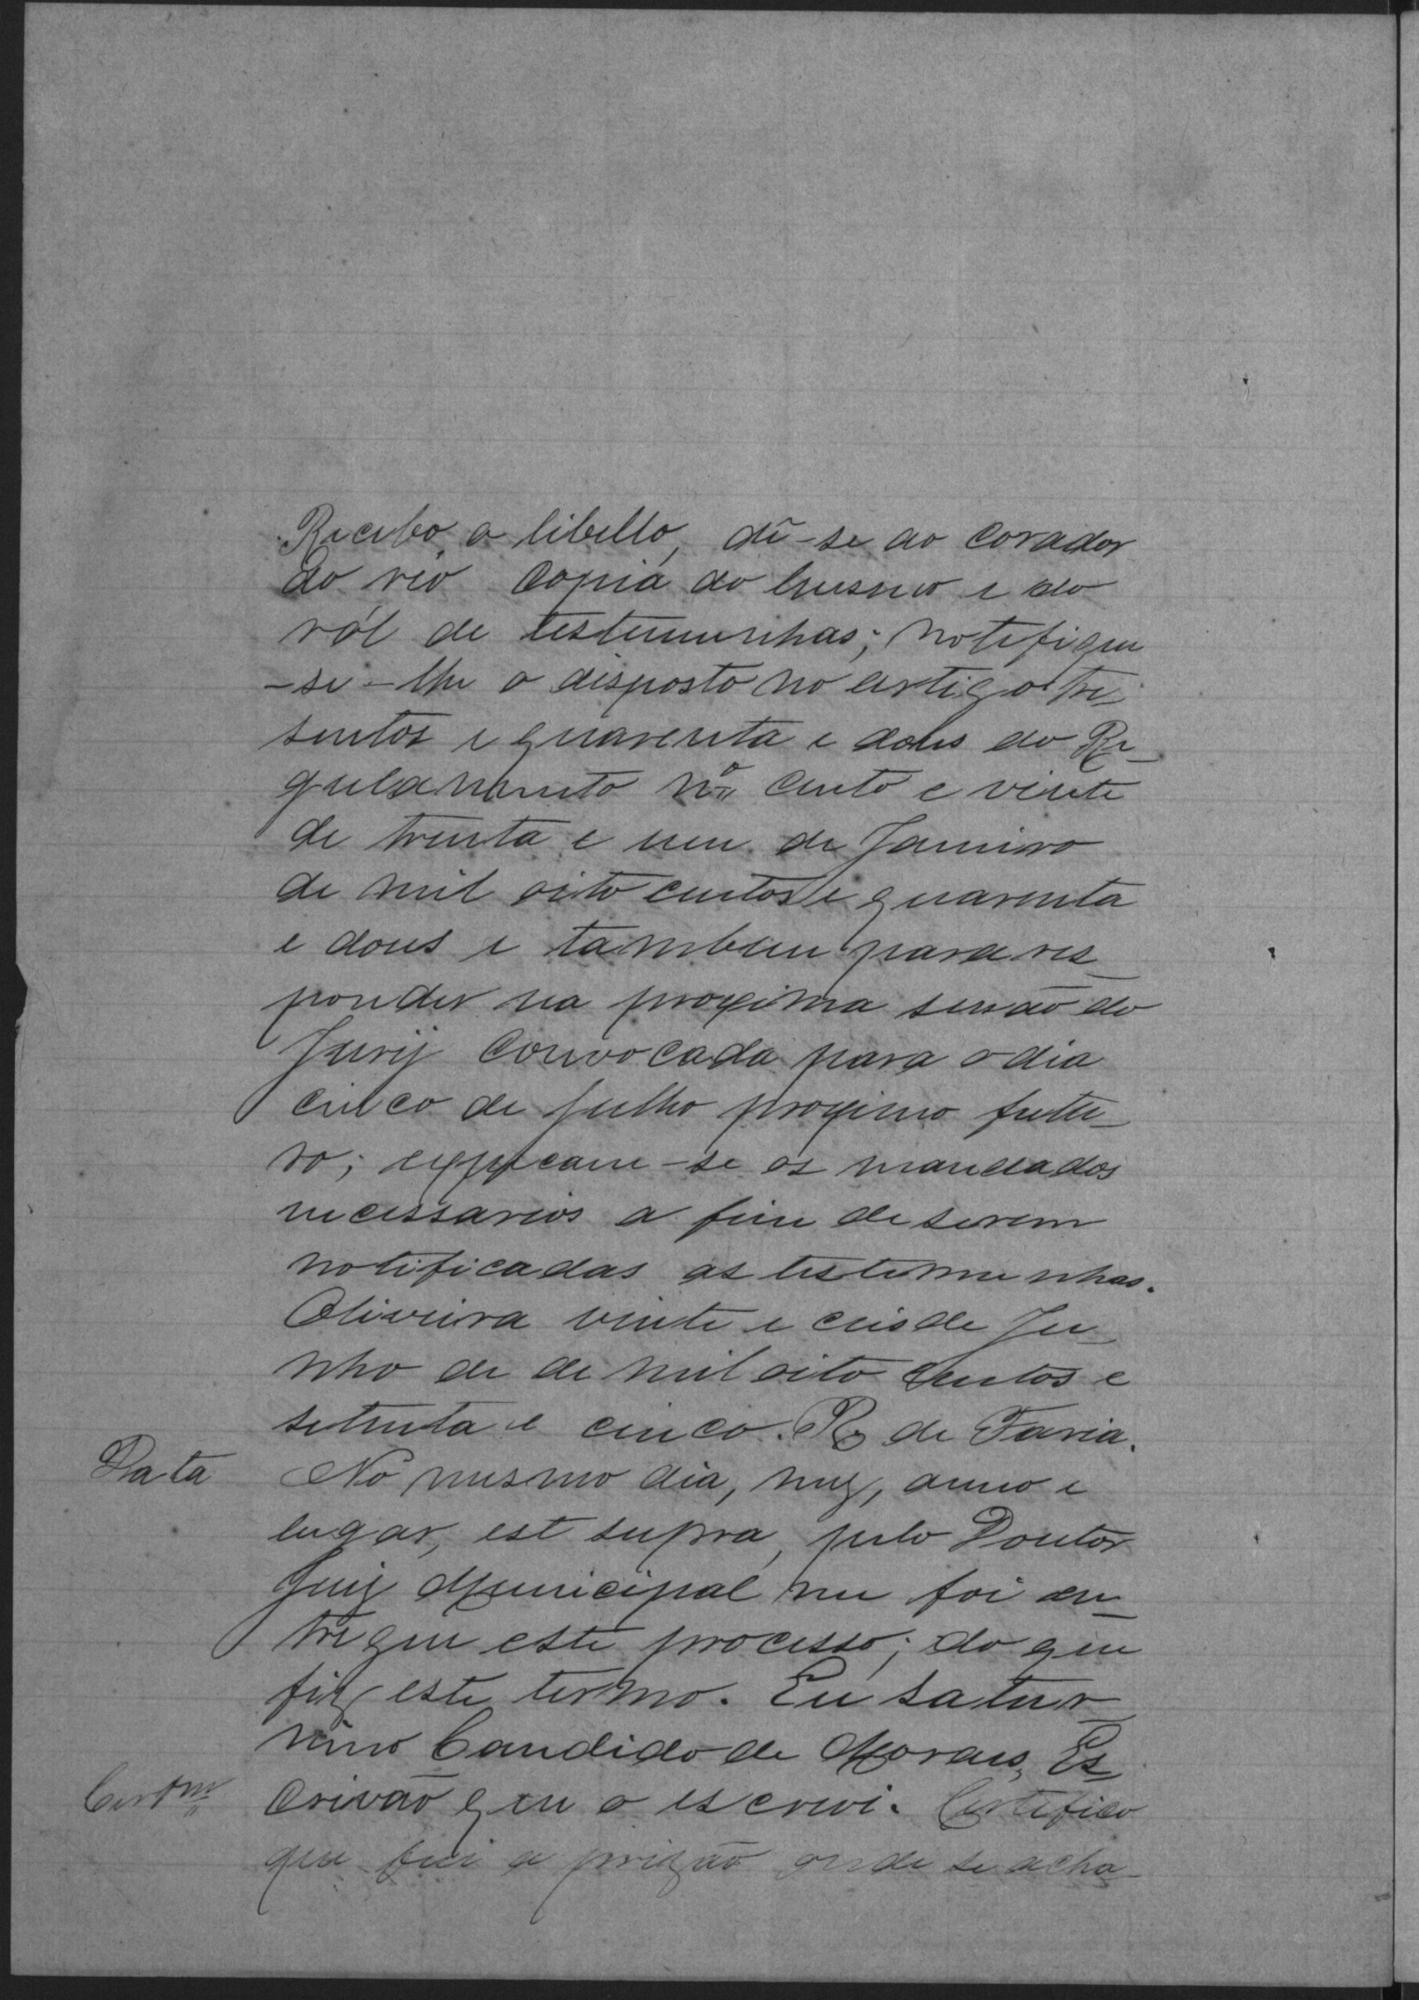 Recebo o libello, dê-se ao Corador
do reo Copia do mesmo e do
ról de testemunhas; notifique
-se-lhe o disposto no artigo tre-
sentos e quarenta e dous do Re-
gulamento nº cento e vinte
de trinta e um de Janeiro
de mil oito centos e quarenta
e dous e tambem para res-
ponder na proxima sessão do
Jury Convocada para o dia
cinco de Julho proximo futu-
ro; expecam-se os mandados
necessarios a fim de serem
notificadas as testemunhas.
Oliveira vinte e seis de Ju-
nho de de mil oito centos e
setenta e cinco. R. de Faria.
Data No mesmo dia, mez, anno e
lugar, est supra, pelo Doutor
Juiz Municipal me foi en-
tregue este processo; do que
fiz este termo. Eu Satur-
nino Candido de Moraes, Es-
Certᵐ crivão que o escrevi. Certifico
que fui a prizão onde se acha-